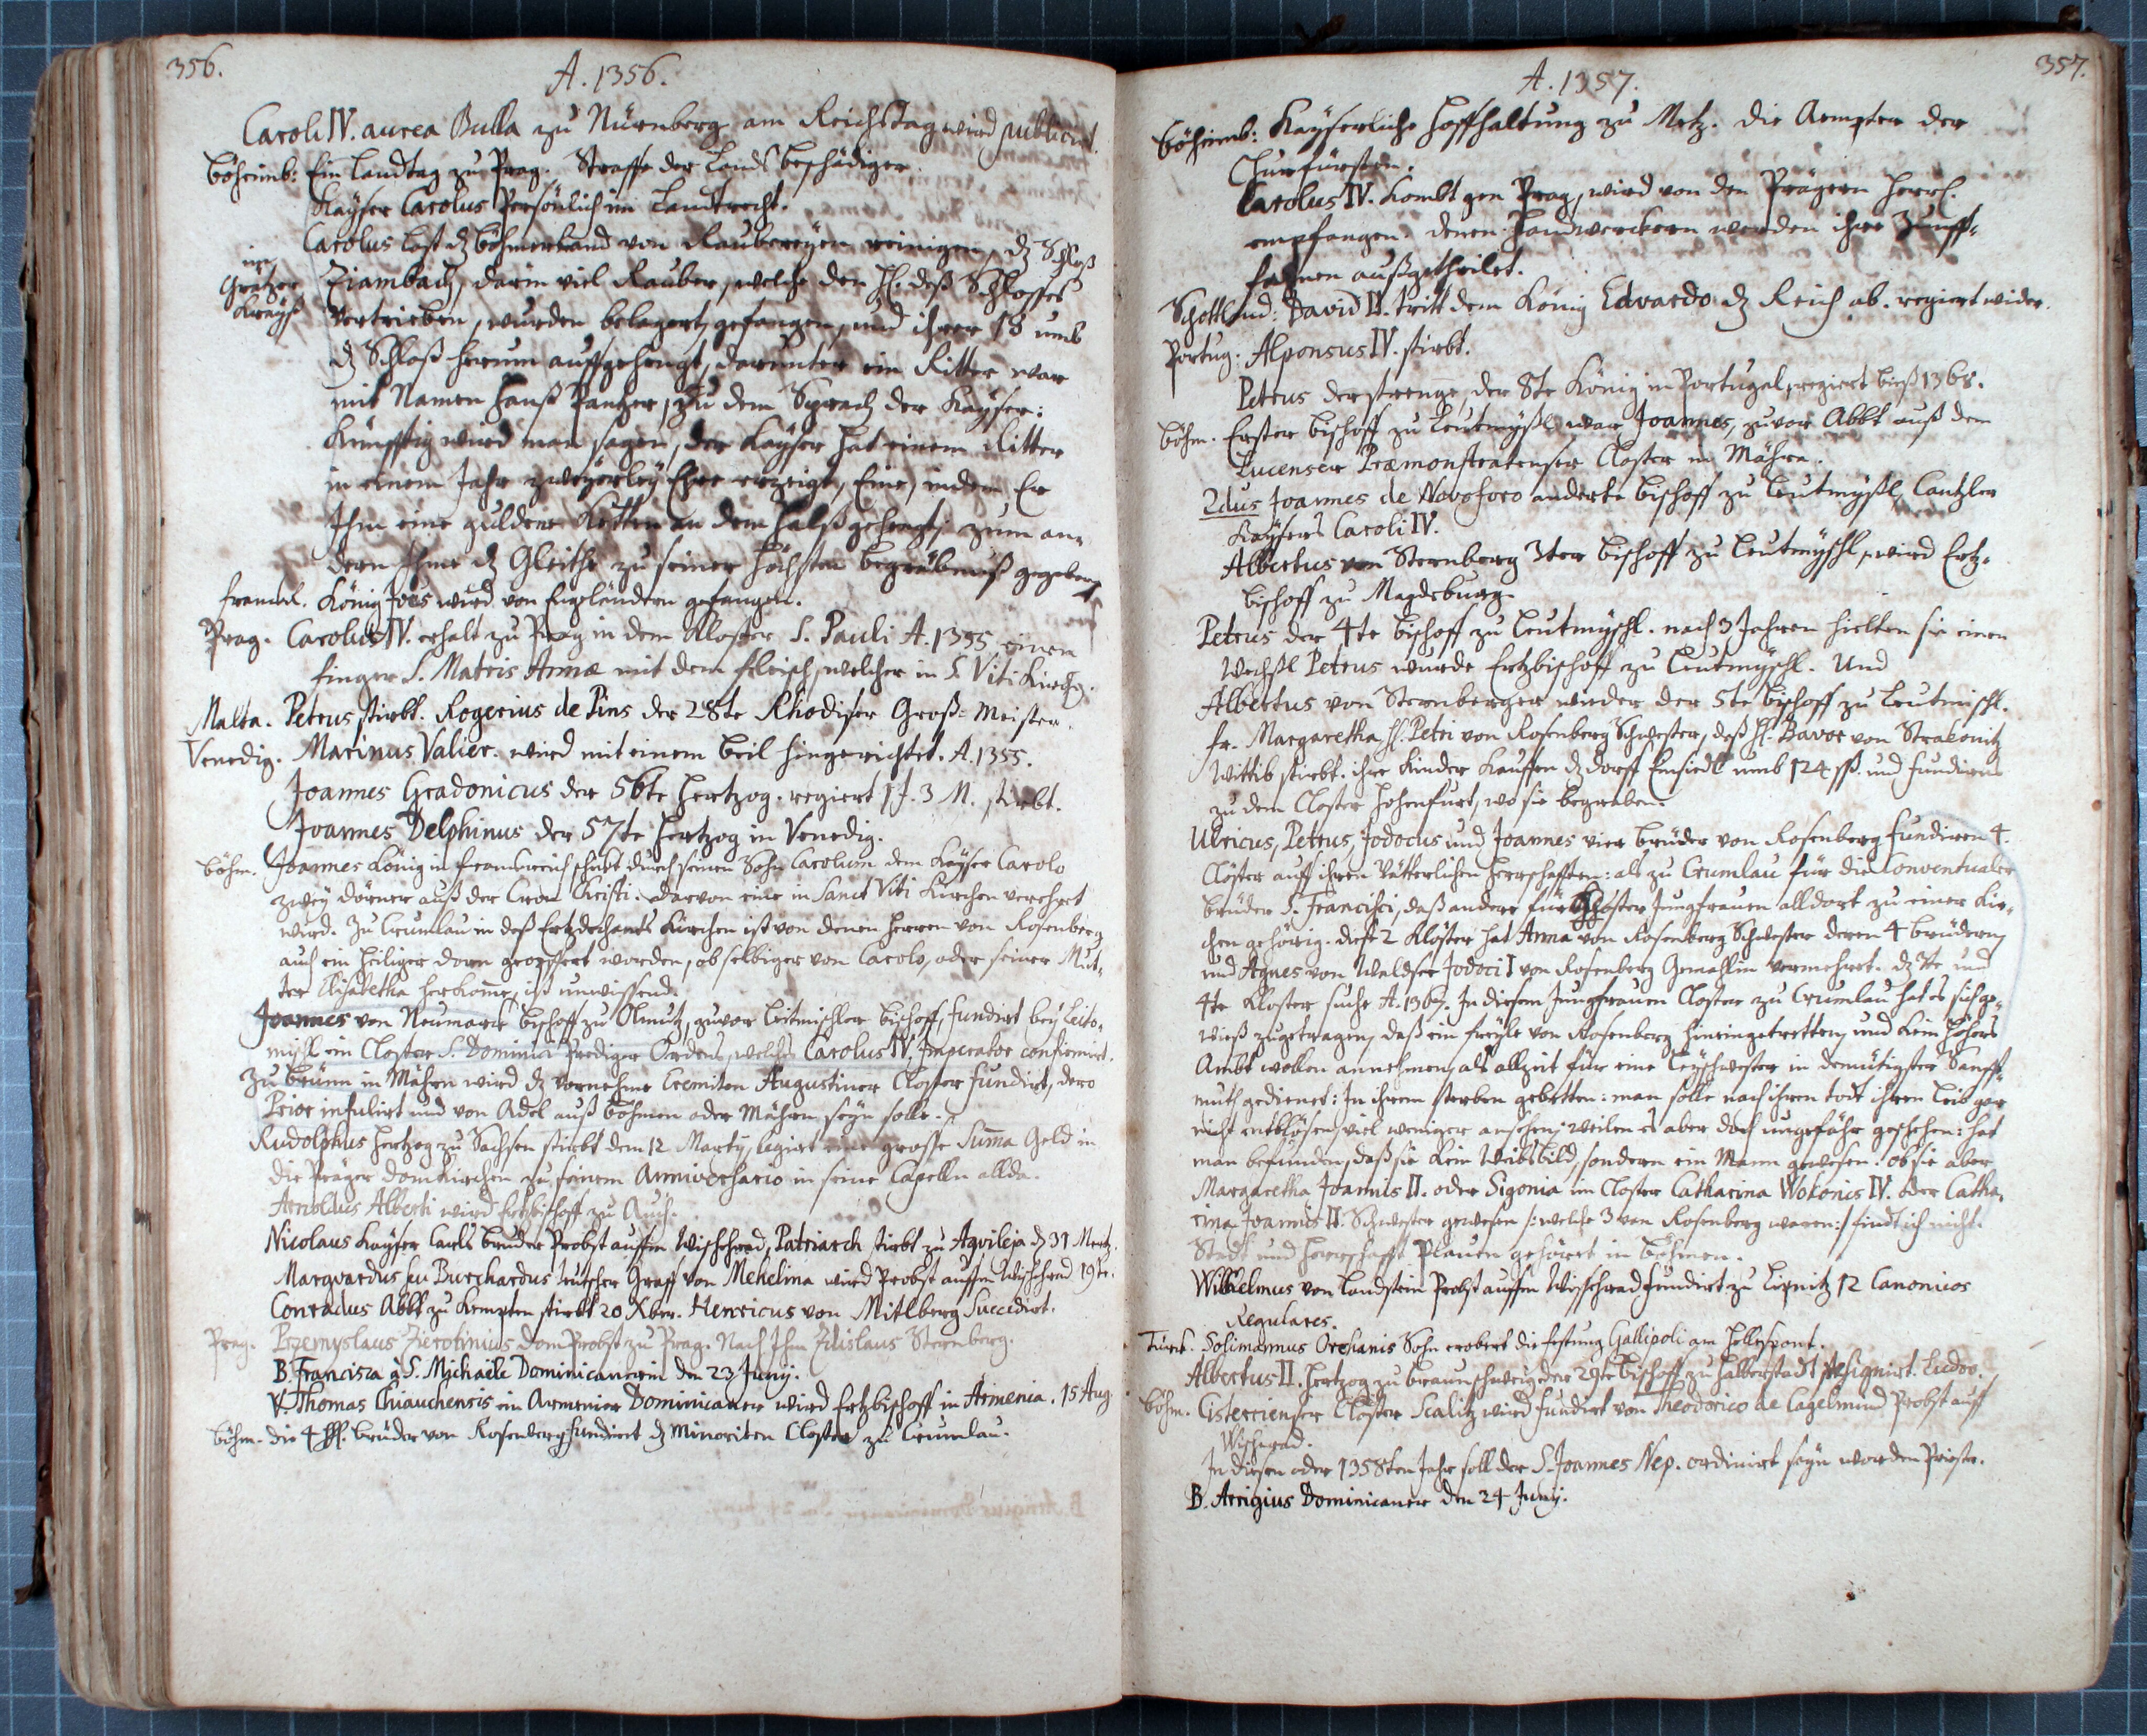 356.
A. 1356.
Caroli IV. aurea Bulla zu Nürnberg am Reichstag wird publicirt.
Böheimb: Ein Landtag zu Prag. Straffe der Lands beschädiger.
Kayser Carolus Persönlich im Landtrecht.
Carolus last dz Böhmerland von Raubereyen reinigen, dz Schloß
im Grätzer Krayß
Ziambach, darin viel Rauber, welche den H. deß Schlosses
vertrieben, wurden belagert, gefangen, und ihrer 18 umb
dz Schloß herum auffgehengt, darunter ein Ritter war
mit Namen Hanß Panzer, zu dem Sprach der Kayser:
Künfftig wird man sagen, der Kayser hat einem Ritter
in einem Jahr zweyerley Ehre erzeigt, Eine, indem Er
Ihm eine guldene Ketten an den Halß gehengt, zum an-
dern Ihme dz Gleithe zu seiner höchsten begräbnuß gegeben.
Franckr. König Joes wird von Engländern gefangen.
Prag. Carolus IV. erhalt zu Prag in dem Kloster S. Pauli A. 1355 einen
finger S. Matris Annæ mit dem fleisch, welcher in S. Viti Kirch.
Malta. Petrus stirbt. Rogerius de Pins der 28te Rhodiser Groß-Meister.
Venedig. Marinus Valier. wird mit einem beil hingerichtet. A. 1355.
Joannes Gradonicus der 56te Hertzog. regiert 1 J. 3 M. stirbt.
Joannes Delphinus der 57te Hertzog in Venedig.
Böhm. Joannes König in Franckreich schickt durch seinen Sohn Carolum dem Kayser Carolo
zwey dörner auß der Cron Christi. darvon eine in Sanct Viti Kirchen verehret
wird. Zu Crumlau in deß Ertzdechants Kirchen ist von denen Herren von Rosenberg
auch ein heiliger dorn geopffert worden, ob selbiger von Carolo, oder seiner Mut-
ter Elisabetha herkome, ist unwissend.
Joannes von Neumarck Bischoff zu Olmutz, zuvor Leitmischler Bischoff, fundirt bey Leito-
mischl ein Closter S. Dominici Prediger Ordens, welches Carolus IV. Imperator confirmirt.
Zu Brünn in Mähren wird dz vornehme Eremiten Augustiner Closter fundirt, dero
Prior infulirt und von Adel auß Böhmen oder Mähren seyn solle.
Rudolphus Hertzog zu Sachsen stirbt den 12 Martij, legirt eine grosse Suma Geld in
die Prager Domkirchen zu seinem Anniversario in seine Capelln allda.
Arnoldus Alberti wird Ertzbischoff zu Auch.
Nicolaus Kayser Carls bruder Probst auffm Wischehrad, Patriarch stirbt zu Aquileja d. 31 Mertz.
Marquardus seu Burchardus teutscher Graff von Mehelina wird Probst auffm Wischehrad 19te.
Conradus Abbt zu Kempten stirbt 20 Xber. Henricus von Mitlberg Succedirt.
Prag. Przemyslaus Zierotinius dom Probst zu Prag. Nach Ihm Zdislaus Sternberg.
B. Francisca à S. Michaële Dominicanerin den 23 Junij.
V. Thomas Chiauchensis ein Armenier Dominicaner wird Ertzbischoff in Armenia. 15 Aug.
Böhm. die 4 HH. Brüder von Rosenberg fundirt dz Minoriten Closter zu Crumlau.
357.
A. 1357.
Böheimb: Kayserliche Hoffhaltung zu Metz. die Aempter der
Churfürsten.
Carolus IV. Kombt gen Prag, wird von den Prägern Herrl.
empfangen. denen Handwerckern werden ihre Zunff-
fahnen außgetheilet.
Schottland: David II. tritt dem König Edvardo dz Reich ab. regiert wider.
Portug. Alponsus IV. stirbt.
Petrus der strenge, der 8te König in Portugal, regiert biß 1368.
Böhm. Erster Bischoff zu Leutmyßl war Joannes, zuvor Abbt auß dem
Lucenser Præmonstratenser Closter in Mähren.
2dus Joannes de Novoforo anderte Bischoff zu Leutmyßl, Cantzler
Kaysers Caroli IV.
Albertus von Sternberg 3ter Bischoff zu Leutmyschl, wird Ertz-
bischoff zu Magdeburg.
Petrus der 4te Bischoff zu Leutmyschl. nach 3 Jahren hielten sie einen
Wechßl Petrus wurde Ertzbischoff zu Leutmyschl. Und
Albertus von Sternberger wieder der 5te Bischoff zu Leutmischl.
Fr. Margaretha H. Petri von Rosenberg Schwester, deß H. Bavor von Strakonitz
Wittib stirbt. ihre Kinder Kauffen dz dorff Einsiedl umb 124 ßß. und fundirens
zu dem Closter Hohenfurt, wo sie begraben.
Ulricus, Petrus, Jodocus und Joannes vier brüder von Rosenberg fundiren 4.
Clöster auff ihren Vätterlichen Herrschafften: als zu Crumlau für die Conventualer
brüder S. Francisci, daß andere für Closter Jungfrauen alldort zu einer Kir-
chen gehörig. diese 2 Klöster hat Anna von Rosenberg Schwester deren 4 brüdern,
und Agnes von Waldsee Jodoci I von Rosenberg Gemahlin vermehret. dz 3te und
4te Kloster suche A. 1367. In diesem Jungfrauen Closter zu Crumlau hat es sich ge-
wieß zugetragen, daß ein freyle von Rosenberg hineingetretten, und kein höhers
Ambt wollen annehmen, als allzeit für eine Leyschwester in demütigster Sanff-
muth gedienet: In ihrem sterben gebetten: man solle nach ihren todt ihren Leib gar
nicht entblösen, viel weniger ansehen, weilen es aber doch ungefähr geschehen: hat
man befunden, daß sie kein Weibsbild, sondern ein Mann gewesen. ob sie aber
Margaretha Joannis II. oder Sigonia im Closter Catharina Wokonis IV. oder Catha-
rina Joannis II. Schwester gewesen /: welche 3 von Rosenberg waren:/ findt ich nicht.
Stadt und Herrschafft Plauen gehöret in Böhmen.
Wilhelmus von Landstein Probst auffm Wisshehrad fundirt zu Lipnitz 12 Canonicos
Regulares.
Türck. Solimannus Orchanis Sohn erobert die festung Gallipoli am Hellespont.
Albertus II. Hertzog zu Braunschweig der 29te Bischoff zu Halberstadt resignirt. Ludov.
Böhm. Cistercienser Closter Scalitz wird fundirt von Theodorico de Cagelmund Probst auff
Wischerad.
In diesen oder 1358ten Jahr soll der S. Joannes Nep. ordinirt seyn worden Priester.
B. Arrigius Dominicaner den 24 Junij.